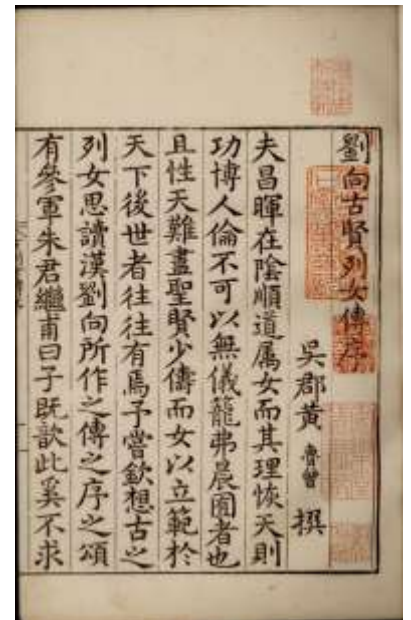 劉向古賢列女傳序
吳郡黃魯曾撰
夫昌暉在陰順道屬女而其理恢天則
功博人倫不可以無儀籠弗晨圃者也
且性天難盡聖賢少儔而女以立範於
天下後世者往往有焉予嘗欽想古之
列女思讀漢劉向所作之傳之序之頌
有參軍朱君繼甫曰子既歆此奚不求